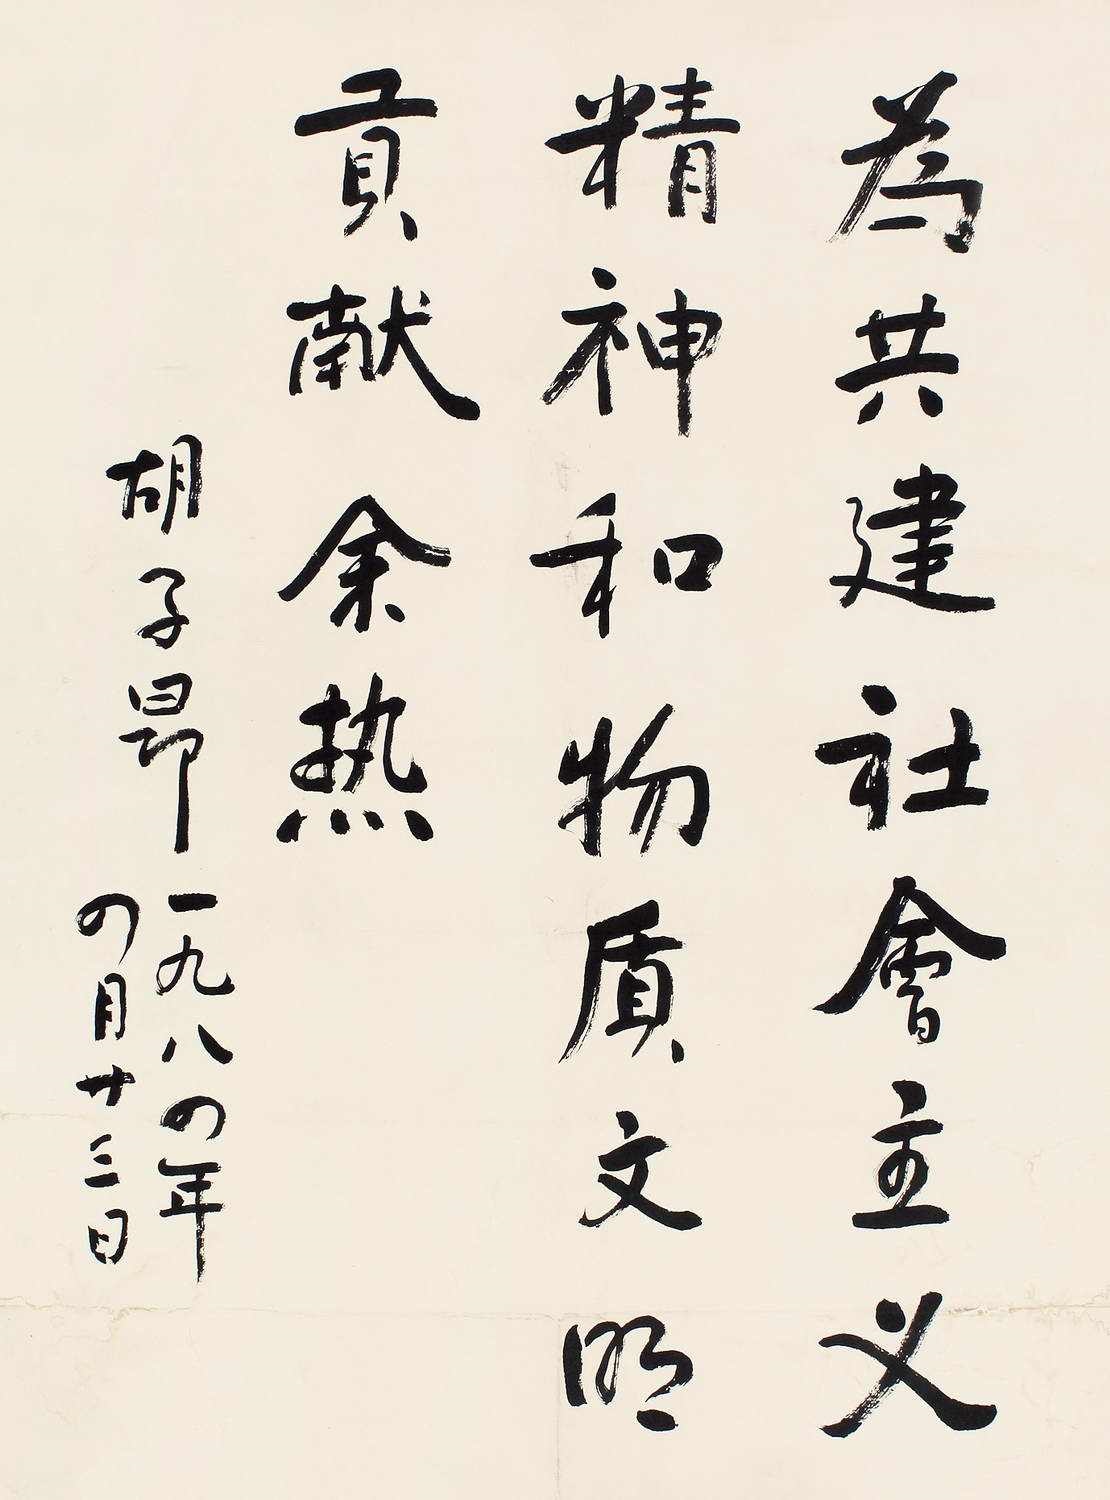 为共建社會主义
精神和物质文明
贡献余热
胡子昂
一九八四年
四月廿三日